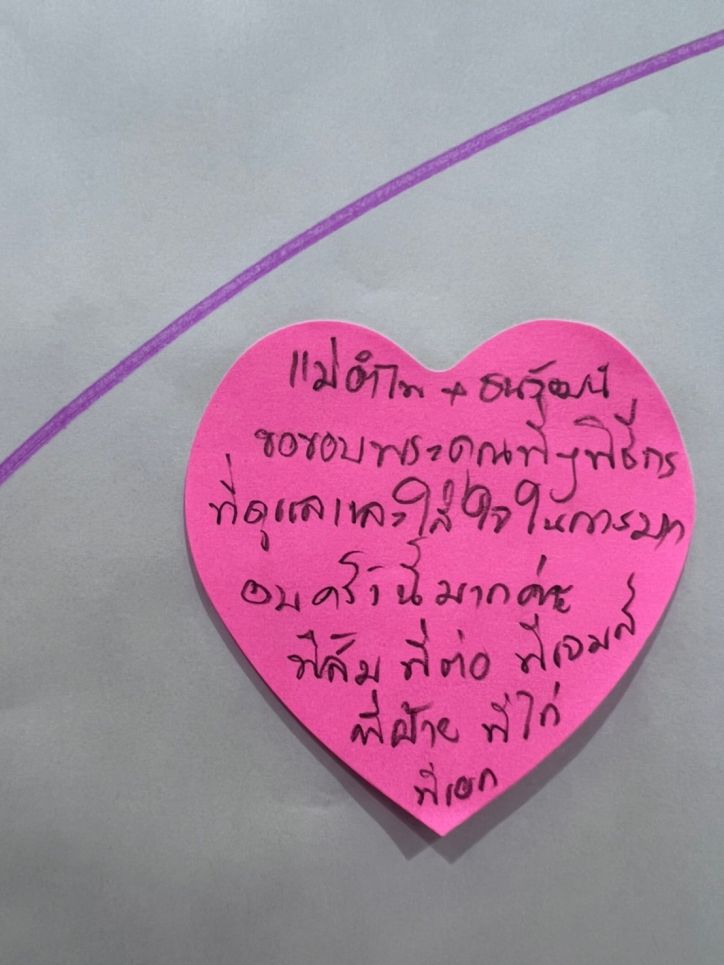 แม่อำไพ + ธนวัฒน์
ขอขอบพระคุณพี่ๆพิธีกร
ที่ดูแลและใส่ใจในการมา
อบครั้งนี้มากค่ะ
พี่ส้ม พี่ต่อ พี่เจมส์
พี่ฝ้าย พี่ไก่
พี่เอก